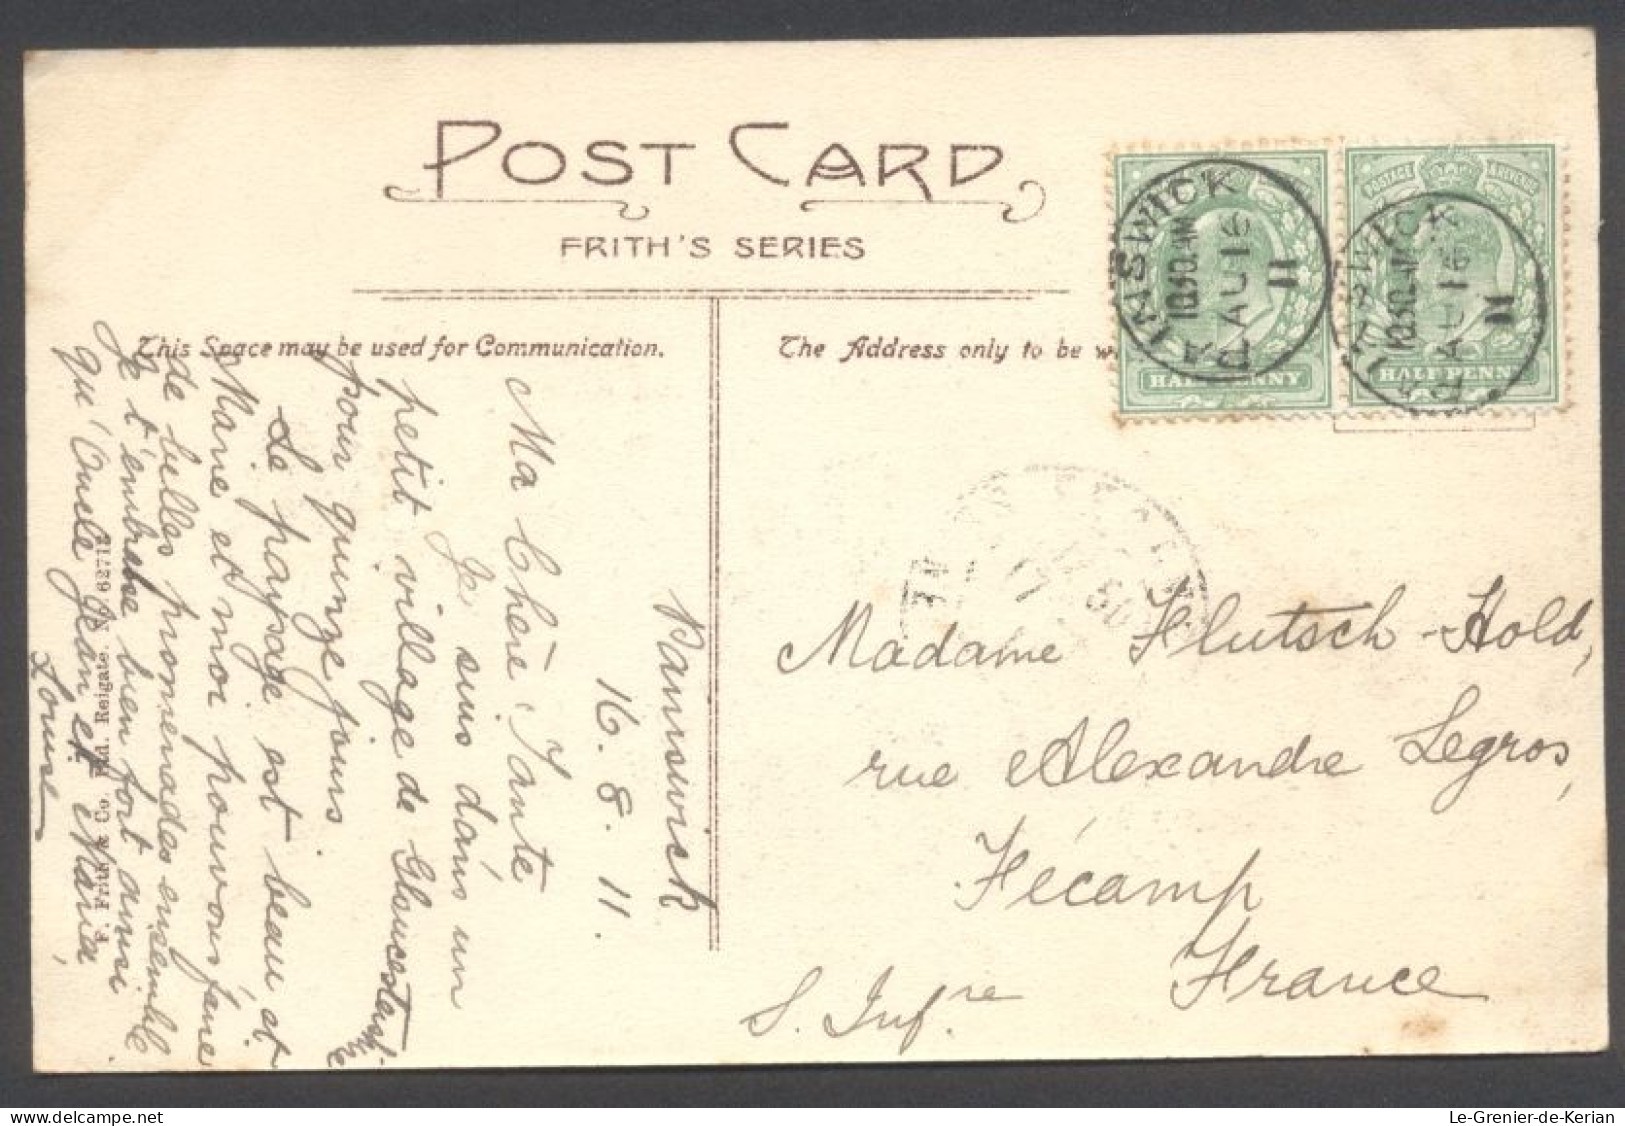 POST CARD
FRITH'S SERIES
This Space may be used for Communication.
The Address only to be w
POSTAGE & REVENUE
HALF PENNY
HALF PENNY
PAINSWICK
10.30 AM
AU 16
11
PAINSWICK
10.30 AM
AU 16
11
Painswick
16. 8. 11.
Ma Chère Tante
Je suis dans un
petit village de Gloucestershire
pour quinze jours
Le paysage est beau, et
Marie et moi pouvons faire
de belles promenades ensemble
Je t'embrasse bien fort ainsi
qu'Oncle Jean et Maria,
Louise
F. Frith & Co. Ltd. Reigate. No. 62712
Madame Flutsch-Hold,
rue Alexandre Legros,
Fécamp
S. Infre. France
Le-Grenier-de-Kerian